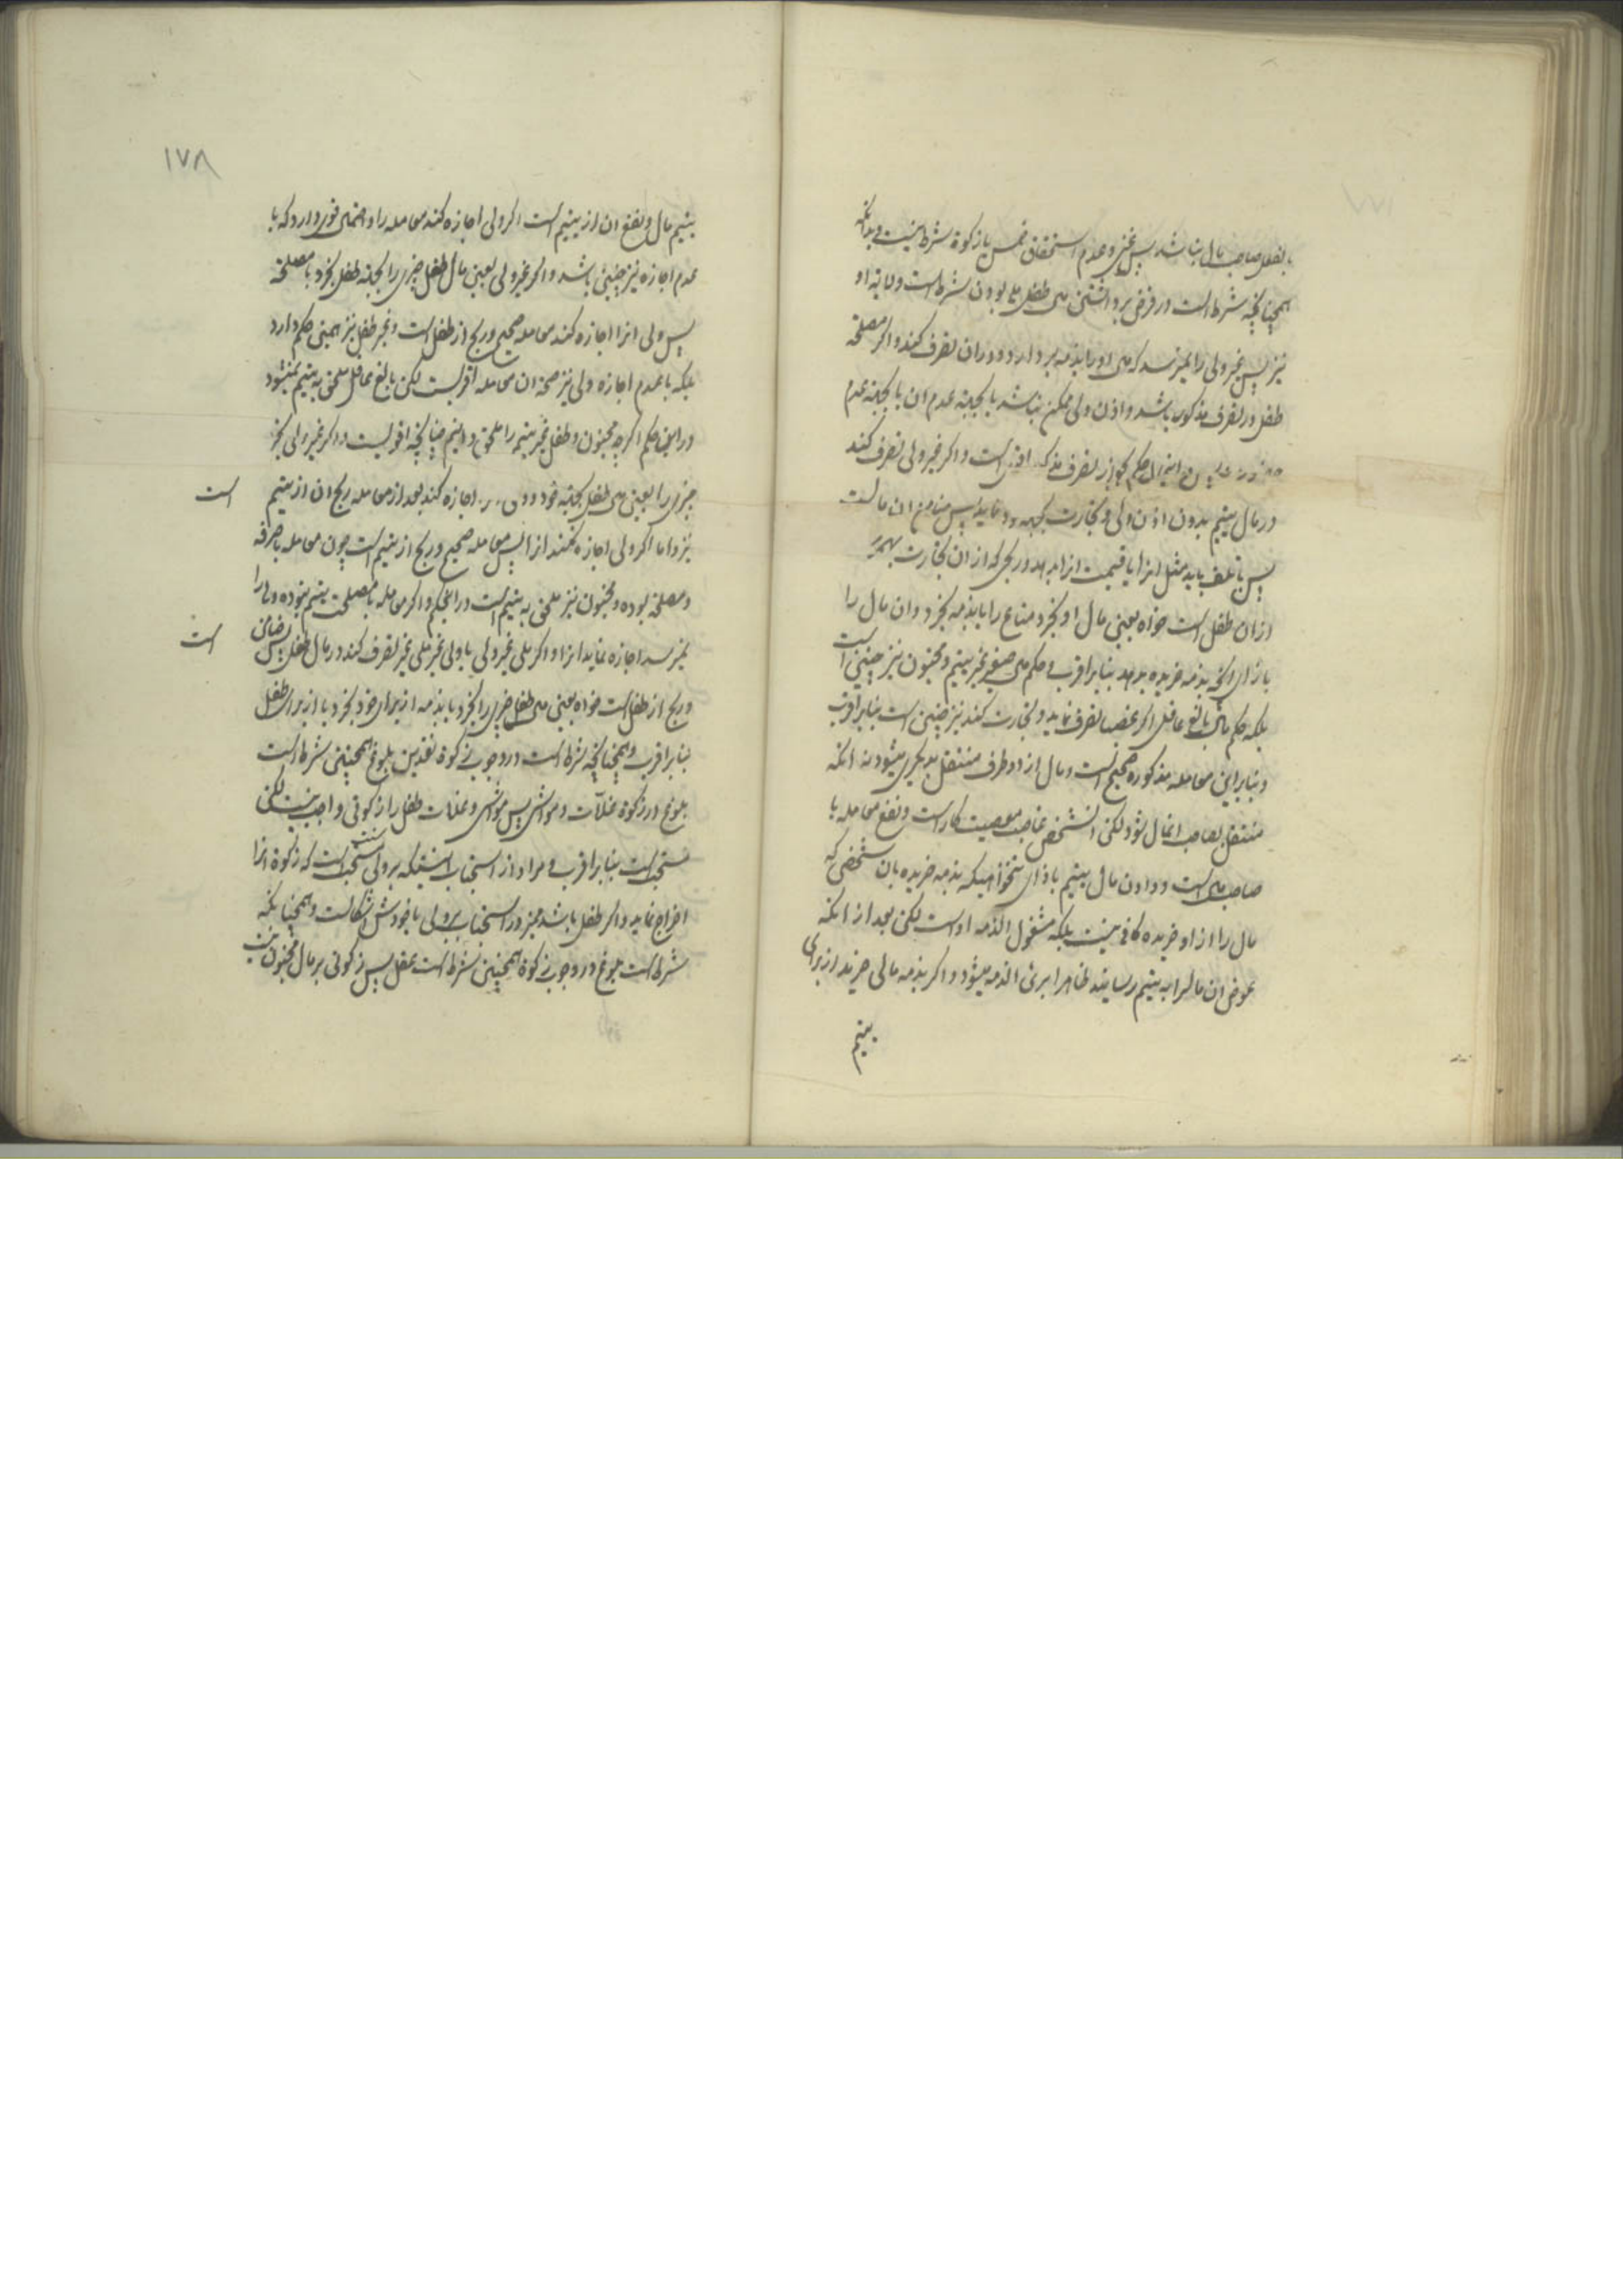 بالفعل صاحب مال نباشد پس غنی و عدم استحقاق خمس یا زکوة شرط نیست و بدانکه
همچنانچه شرط است در قرض برداشتن مال طفل ملی بودن شرط است ولایة او
نیز پس غیر ولی را نمیرسد که مال او را بذمه بردارد و در ان تصرف کند و اگر مصلحة
طفل در تصرف مذکور باشد و اذن ولی ممکن نباشد یا بجهة عدم ان یا بجهة عدم
حکم بجواز تصرف اقوی است و اگر غیر ولی تصرف کند
در مال یتیم بدون اذن ولی و تجارت بجهة خود نماید پس ضامن ان مالست
پس با تلف باید مثل انرا یا قیمت انرا بدهد و ربحی که از ان تجارت بهمرسد
از ان طفل است خواه بعین مال او بخرد متاع را یا بذمه بخرد و ان مال را
بازای انچه بذمه خریده بدهد بنابر اقرب و حکم مال صغیر غیر یتیم و مجنون نیز چنین است
بلکه حکم مال بالغ عاقل اگر غصبا تصرف نماید و تجارت کند نیز چنین است بنابر اقرب
و بنابر این معامله مذکوره صحیح است و مال از دو طرف منتقل بدیگری میشود نه انکه
منتقل بصاحب انمال شود لکن انشخص غاصب معصیت کار است و نفع معامله با
صاحب مال است و دادن مال یتیم بازای تنخواهیکه بذمه خریده بان شخصی که
مال را از او خریده کافی نیست بلکه مشغول الذمه او است لکن بعد از انکه
عوض ان مالرا به یتیم رسانید ظاهرا بریء الذمه میشود و اگر بذمه مالی خرید از برای
یتیم
١٧٨
یتیم مال و نفع ان از یتیم است اگر ولی اجازه کند معامله را و احتمال قوی دارد که با
عدم اجازه نیز چنین باشد و اگر غیر ولی بعین مال طفل چیزی را بجهة طفل بخرد با مصلحة
پس ولی انرا اجازه کند معامله صحیح و ربح از طفل است و غیر طفل نیز همین حکم دارد
بلکه با عدم اجازه ولی نیز صحة ان معامله اقربست لکن بالغ عاقل ملحق به یتیم نمیشود
در این حکم اگرچه مجنون و طفل غیر یتیم را ملحق دانیم چنانچه اقویست و اگر غیر ولی بخرد
چیزی را بعین مال طفل بجهة خود و ولی اجازه کند بعد از معامله ربح ان از یتیم است
نیز و اما اگر ولی اجازه نکند انرا پس معامله صحیح و ربح از یتیم است چون معامله با صرفه
و مصلحة بوده و مجنون نیز ملحق به یتیم است در اینحکم و اگر معامله با مصلحت یتیم نبوده ولی را
نمیرسد اجازه نماید انرا و اگر ملی غیر ولی یا ولی غیر ملی غیر تصرف کند در مال طفل پس ضامن است
و ربح از طفل است خواه بعین مال طفل چیزی را بخرد یا بذمه از برای خود بخرد یا از برای طفل
بنابر اقرب و همچنانچه شرط است در وجوب زکوة نقدین بلوغ همچنین شرط است
بلوغ در زکوة غلات و مواشی پس مواشی و غلات طفل را زکوتی واجب نیست لکن
مستحب است بنابر اقرب و مراد از استحباب اینستکه بر ولی مستحب است که زکوة انرا
اخراج نماید و اگر طفل باشد ممیز در استحباب بر ولی یا خودش اشکالست و همچنانکه
شرط است بلوغ در وجوب زکوة همچنین شرط است عقل پس زکوتی بر مال مجنون نیست